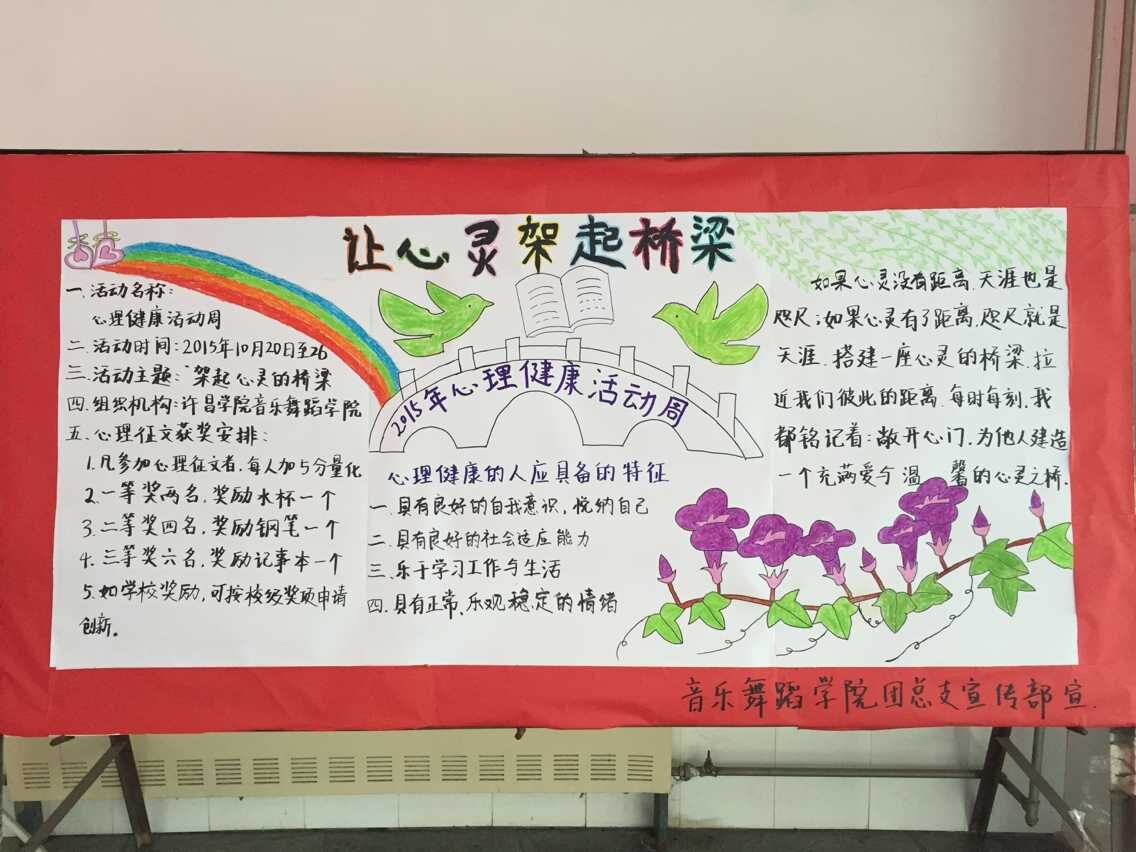 让心灵架起桥梁
一.活动名称:
心理健康活动周
二.活动时间:2015年10月20日至26
三.活动主题:架起心灵的桥梁
四.组织机构:许昌学院音乐舞蹈学院
五.心理征文获奖安排:
1.凡参加心理征文者,每人加5分量化
2.一等奖两名,奖励水杯一个
3.二等奖四名,奖励钢笔一个
4.三等奖六名,奖励记事本一个
5.如学校奖励,可按校级奖项申请
创新。
2015年心理健康活动周
心理健康的人应具备的特征
一.具有良好的自我意识,悦纳自己
二.具有良好的社会适应能力
三.乐于学习工作与生活
四.具有正常、乐观、稳定的情绪
如果心灵没有距离,天涯也是
咫尺;如果心灵有了距离,咫尺就是
天涯.搭建一座心灵的桥梁,拉
近我们彼此的距离.每时每刻,我
都铭记着:敞开心门,为他人建造
一个充满爱与温馨的心灵之桥.
音乐舞蹈学院团总支宣传部宣.